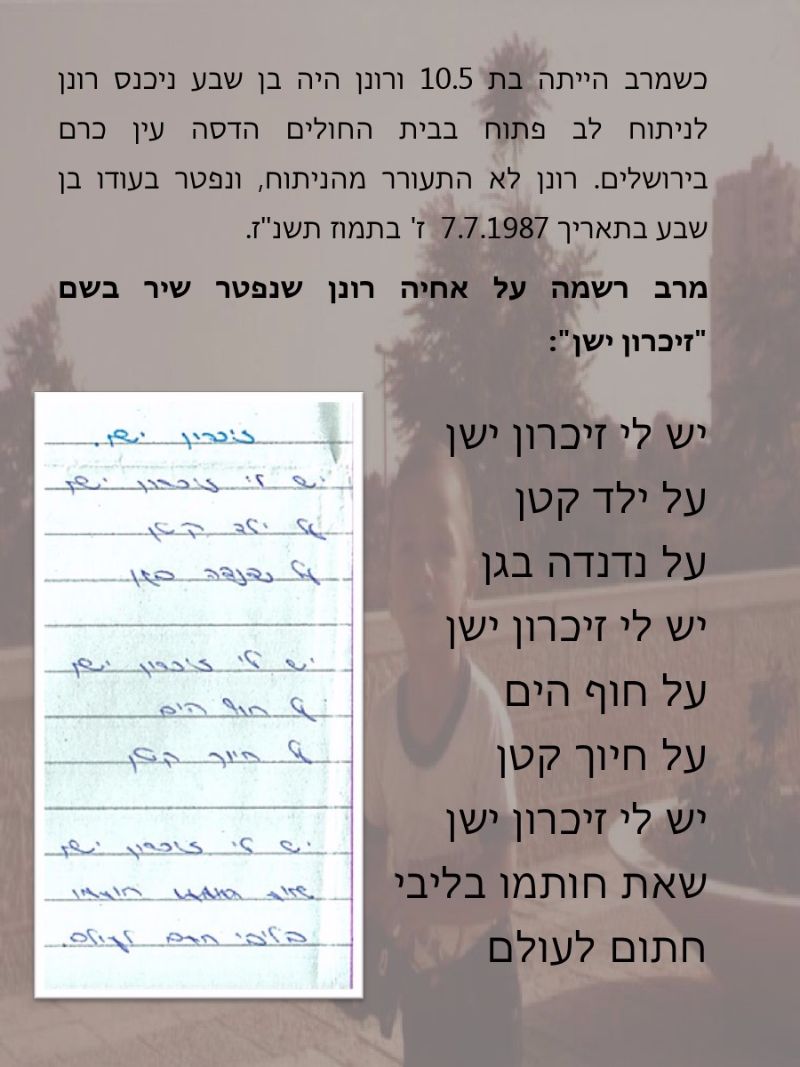 כשמרב הייתה בת 10.5 ורונן היה בן שבע ניכנס רונן
לניתוח לב פתוח בבית החולים הדסה עין כרם
בירושלים. רונן לא התעורר מהניתוח, ונפטר בעודו בן
שבע בתאריך 7.7.1987 ז' בתמוז תשנ"ז.
מרב רשמה על אחיה רונן שנפטר שיר בשם
"זיכרון ישן":
יש לי זיכרון ישן
על ילד קטן
על נדנדה בגן
יש לי זיכרון ישן
על חוף הים
על חיוך קטן
יש לי זיכרון ישן
שאת חותמו בליבי
חתום לעולם
זיכרון ישן.
יש לי זיכרון ישן
על ילד קטן
על נדנדה בגן
יש לי זיכרון ישן
על חוף הים
על חיוך קטן
יש לי זיכרון ישן
שאת חותמו
בליבי חתם לעולם.